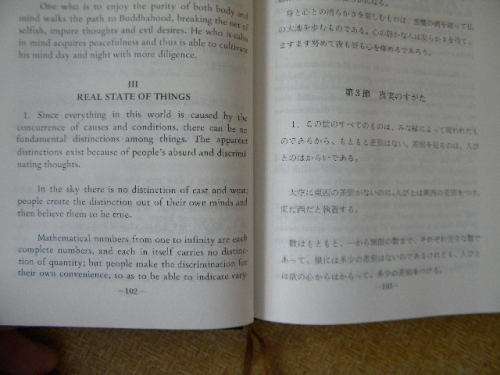 One who is to enjoy the purity of both body and
mind walks the path to Buddhahood, breaking the net of
selfish, impure thoughts and evil desires. He who is calm
in mind acquires peacefulness and thus is able to cultivate
his mind day and night with more diligence.
III
REAL STATE OF THINGS
1. Since everything in this world is caused by the
concurrence of causes and conditions, there can be no
fundamental distinctions among things. The apparent
distinctions exist because of people's absurd and discrimi-
nating thoughts.
In the sky there is no distinction of east and west;
people create the distinction out of their own minds and
then believe them to be true.
Mathematical numbers from one to infinity are each
complete numbers, and each in itself carries no distinc-
tion of quantity; but people make the discrimination for
their own convenience, so as to be able to indicate vary-
—102—
身と心との清らかさを楽しむものは、悪魔の網を破って仏
の大地を歩むものである。心の静かな人は安らかさを得て、
ますます努めて夜も昼も心を修めるであろう。
第3節 真実のすがた
1、この世のすべてのものは、みな縁によって現われたも
のであるから、もともと差別はない。差別を見るのは、人びと
とのはからいである。
大空に東西の差別がないのに、人びとは東西の差別をつけ、
東だ西だと執着する。
数はもともと、一から無限の数まで、それぞれ完全な数で
あって、量には多少の差別はないのであるけれども、人びと
は欲の心からはからって、多少の差別をつける。
—103—